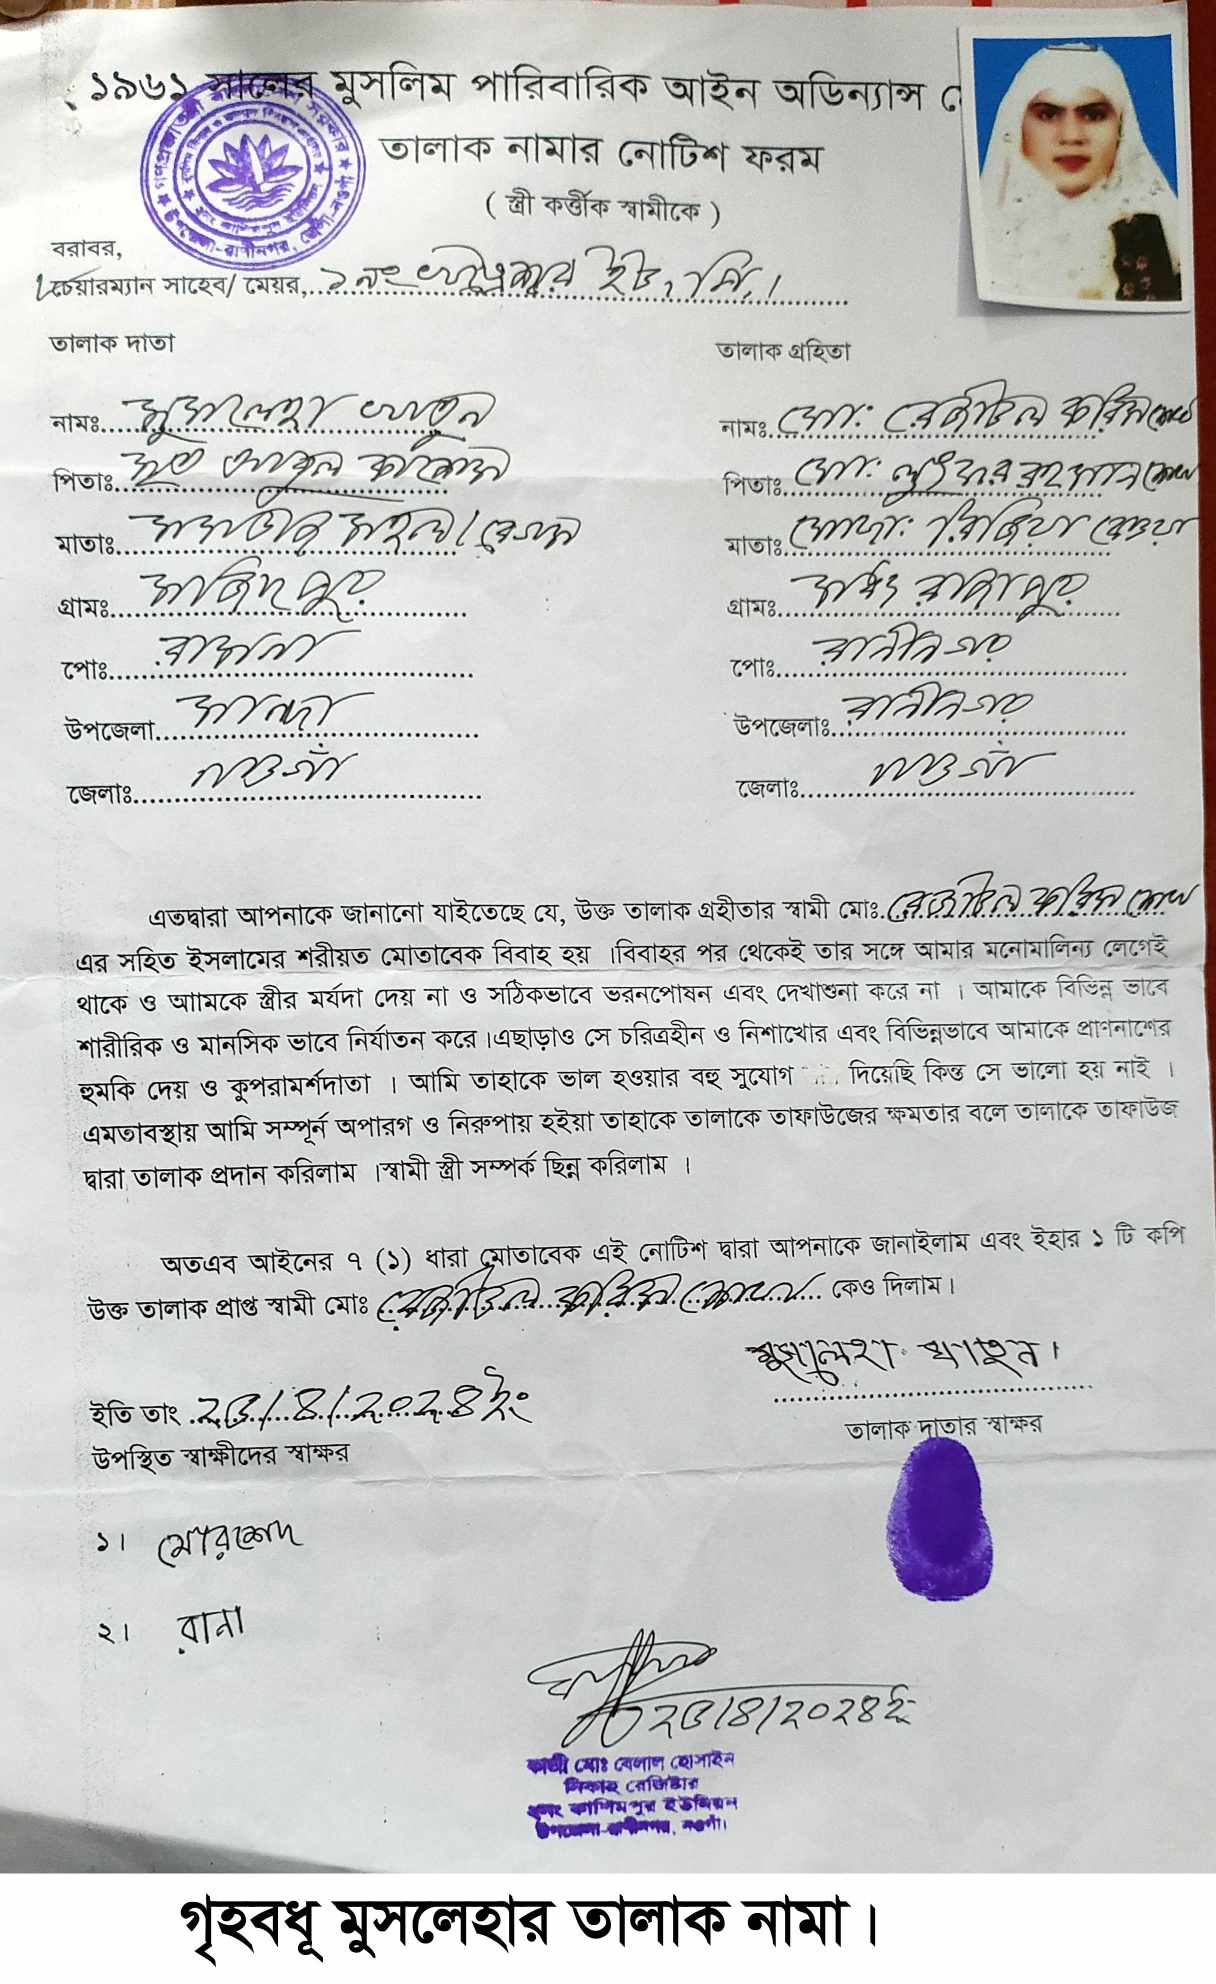 ১৯৬১ সালের মুসলিম পারিবারিক আইন অডিন্যান্স
তালাক নামার নোটিশ ফরম
( স্ত্রী কর্ত্তৃক স্বামীকে )
বরাবর,
চেয়ারম্যান সাহেব/ মেয়র, ১ নং
তালাক দাতা
তালাক গ্রহিতা
নামঃ মুসলেহা খাতুন
নামঃ মোঃ রেজাউল করিম
পিতাঃ মৃত আবুল কালাম
পিতাঃ মোঃ লুৎফর রহমান
মাতাঃ মমতাজ মহল বেগম
মাতাঃ মোছাঃ রিজিয়া বেওয়া
গ্রামঃ
গ্রামঃ রাজাপুর
পোঃ
পোঃ রানীনগর
উপজেলা মান্দা
উপজেলাঃ রানীনগর
জেলাঃ নওগাঁ
জেলাঃ নওগাঁ
এতদ্বারা আপনাকে জানানো যাইতেছে যে, উক্ত তালাক গ্রহীতার স্বামী মোঃ রেজাউল করিম
এর সহিত ইসলামের শরীয়ত মোতাবেক বিবাহ হয় ।বিবাহর পর থেকেই তার সঙ্গে আমার মনোমালিন্য লেগেই
থাকে ও আামকে স্ত্রীর মর্যদা দেয় না ও সঠিকভাবে ভরনপোষন এবং দেখাশুনা করে না । আমাকে বিভিন্ন ভাবে
শারীরিক ও মানসিক ভাবে নির্যাতন করে ।এছাড়াও সে চরিত্রহীন ও নিশাখোর এবং বিভিন্নভাবে আমাকে প্রাণনাশের
হুমকি দেয় ও কুপরামর্শদাতা । আমি তাহাকে ভাল হওয়ার বহু সুযোগ দিয়েছি কিন্ত সে ভালো হয় নাই ।
এমতাবস্থায় আমি সম্পূর্ন অপারগ ও নিরুপায় হইয়া তাহাকে তালাকে তাফাউজের ক্ষমতার বলে তালাকে তাফাউজ
দ্বারা তালাক প্রদান করিলাম ।স্বামী স্ত্রী সম্পর্ক ছিন্ন করিলাম ।
অতএব আইনের ৭ (১) ধারা মোতাবেক এই নোটিশ দ্বারা আপনাকে জানাইলাম এবং ইহার ১ টি কপি
উক্ত তালাক প্রাপ্ত স্বামী মোঃ রেজাউল করিম কেও দিলাম ।
মুসলেহা খাতুন।
ইতি তাং ২৩/৪/২০২৪ইং
তালাক দাতার স্বাক্ষর
উপস্থিত স্বাক্ষীদের স্বাক্ষর
১। মোরশেদ
২। রানা
২৩/৪/২০২৪ইং
কাজী মোঃ বেলাল হোসাইন
নিকাহ রেজিষ্টার
কাশিমপুর ইউনিয়ন
উপজেলা-রাণীনগর, নওগাঁ।
গৃহবধূ মুসলেহার তালাক নামা।